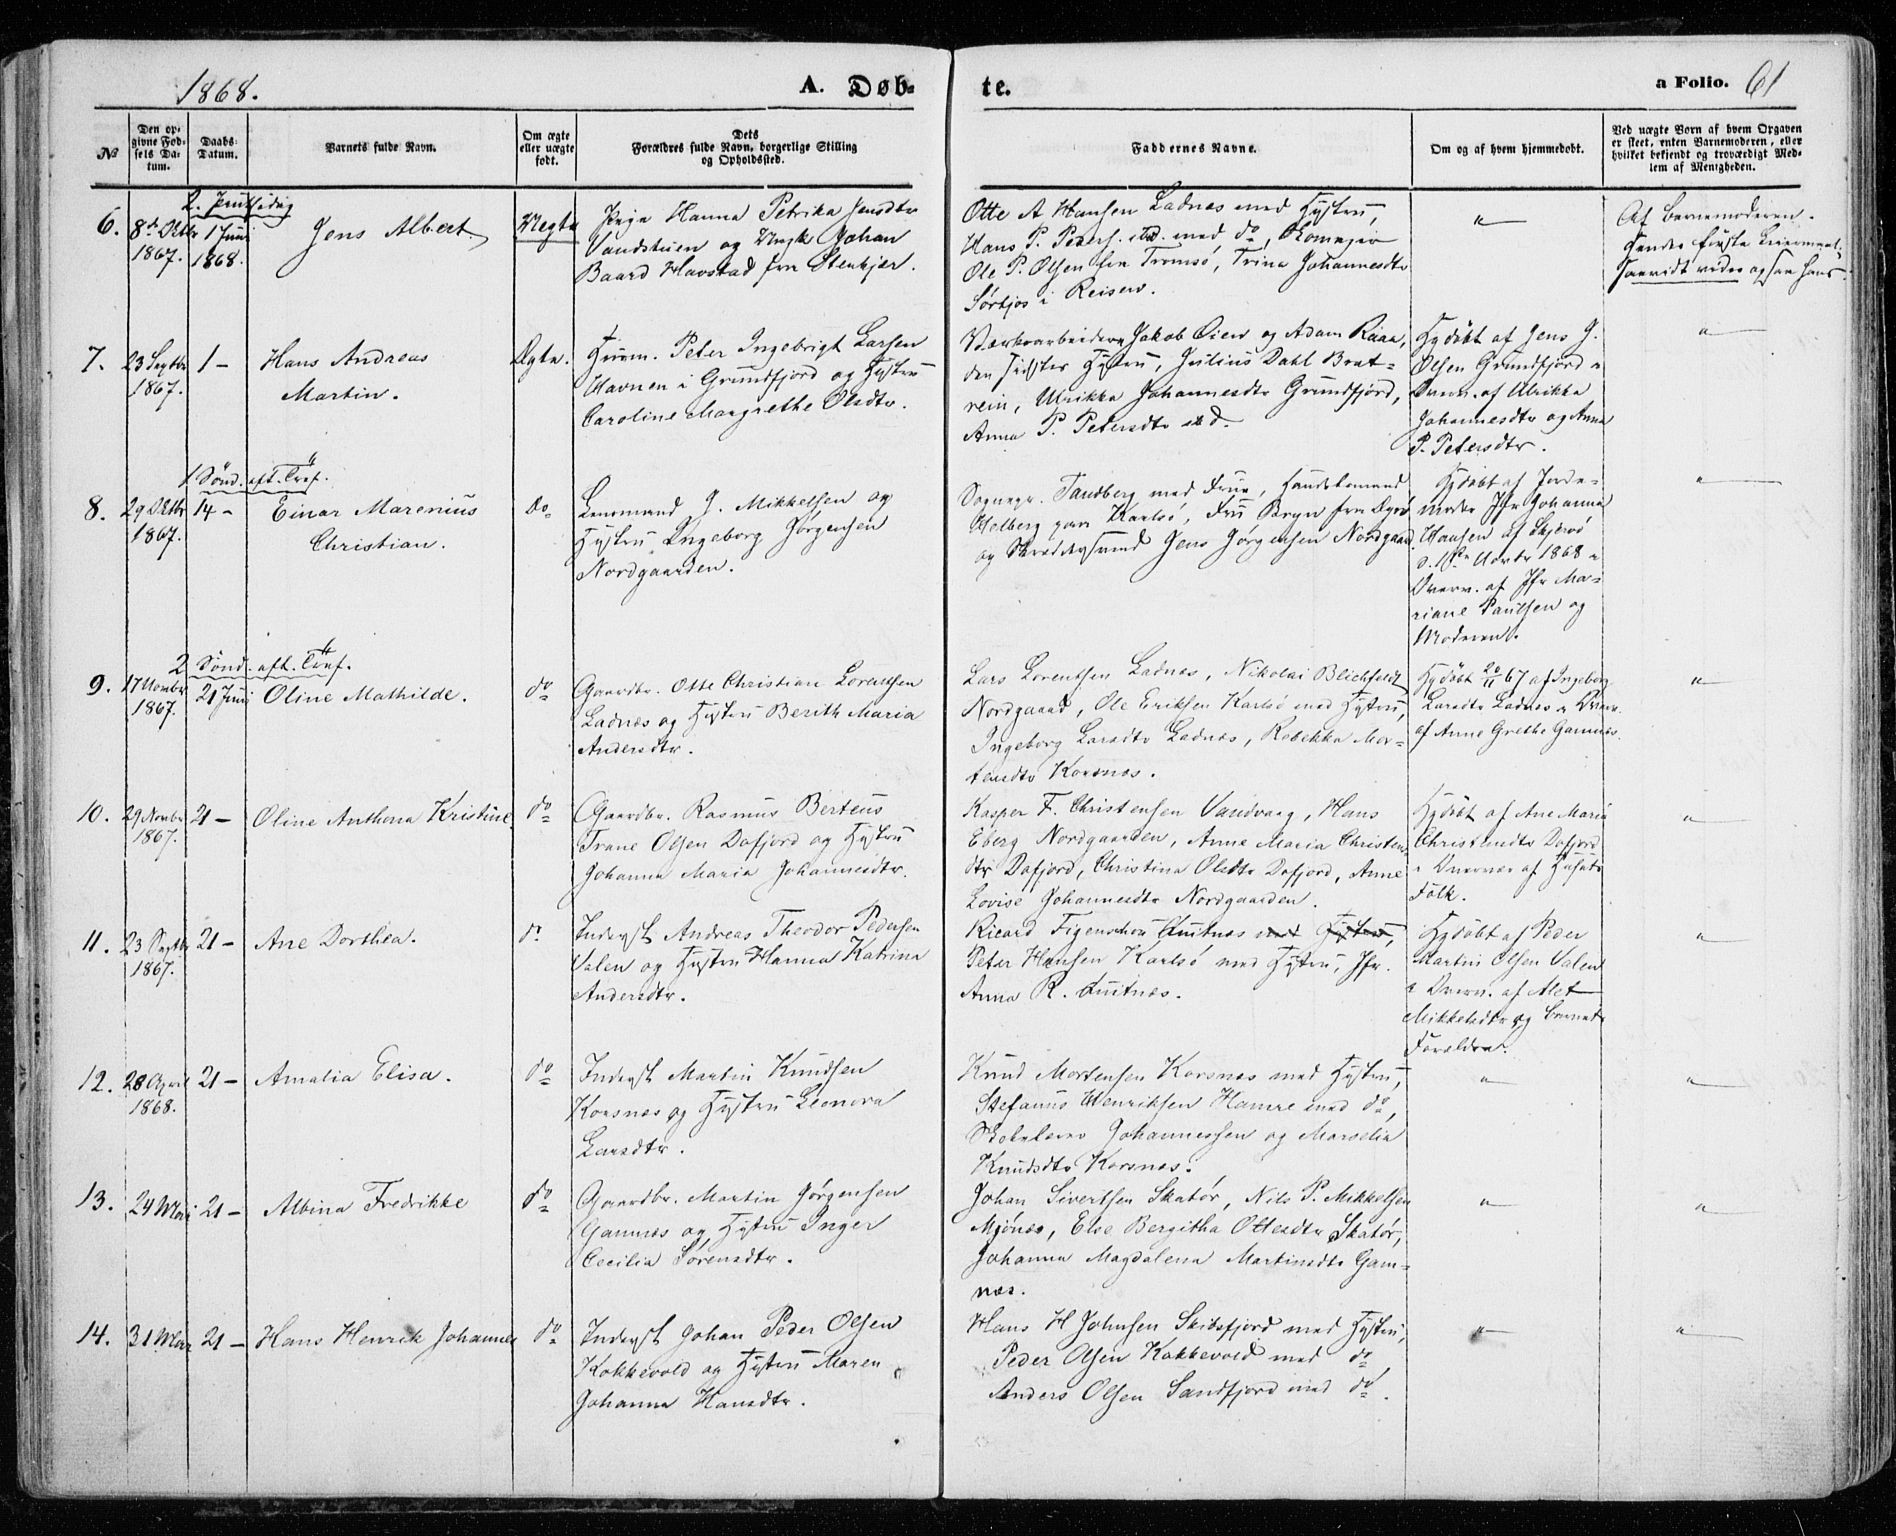 1868.
A. Døb-
te.
a Folio. 61
No
Den op-
givne Fød-
sels Da-
tum.
Daabs-
Datum.
Barnets fulde Navn.
Om ægte
eller uægte
født.
Dets
Forældres fulde Navn, borgerlige Stilling
og Opholdssted.
Faddernes Navne.
Om og af hvem hjemmedøbt.
Ved uægte Børn af hvem Opgaven
er skeet, enten Barnemoderen, eller
hvilket bekjendt og troværdigt Med-
lem af Menigheden.
6.
8de Oktbr
1867.
1 Juni
1868.
Jens Albert.
Uegte
Pige Hanna Petrika Jensdtr
Vandstuen og Ungk. Johan
Baard Havstad fra Stenkjær.
Otte A Hansen Ladnæs med Hustru,
Hans P. Peders. std. med do,
Ole P. Olsen fra Tromsø, Trina Johannesdtr
i Reisen.
"
Af Barnemoderen.
7.
23 Septbr
1867.
1 –
Hans Andreas
Martin.
Ægte.
Huusm. Peter Ingebrigt Larsen
Havnen i Grundfjord og Hustru
Caroline Margrethe Olsdtr.
Værkarbeiderne Jakob Øien og Adam Raaa,
den sidstes Hustru, Julius Dahl Brat-
rein, Ulrikka Johannesdtr Grundfjord,
Anna P. Petersdtr std.
Hjdøbt af Jens J.
Olsen Grundfjord i
Overv. af Ulrikka
Johannesdtr og Anna
P. Petersdtr.
"
1 Sønd. eft. Tref.
8.
29 Oktbr
1867.
14 –
Einar Marenius
Christian.
Do
Lensmand J. Mikkelsen og
Hustru Ingeborg Jørgensen
Nordgaarden.
Sognepr. Tandberg med Frue, Handelsmand
Holberg paa Karlsø, Fru Bryn fra
og Jens Jørgensen Nordgaard.
Hjdøbt af Jorde-
moder Jfr Johanna
Hansen af Skjervø
i
Overv. af Jfr Ma-
riane Paulsen og
Moderen.
"
2 Sønd. eft. Tref.
9.
17 Novmbr
1867.
21 Juni
Oline Mathilde.
do
Gaardbr. Otte Christian Lorentsen
Ladnæs og Hustru Berith Maria
Andersdtr.
Lars Lorentsen Ladnæs, Nikolai Blichfeldt
Nordgaard, Ole Eriksen Karlsø med Hustru,
Ingeborg Larsdtr Ladnæs, Rebekka Mor-
tensdtr Korsnæs.
Hjdøbt 20/11 67 af Ingeborg
Larsdtr Ladnæs i Overv.
af Anne Grethe Gamnæs.
"
10.
29 Novmbr
1867.
21 –
Oline Anthona Kristine
do
Gaardbr. Rasmus Berteus
Trane Olsen Dafjord og Hustru
Johanna Maria Johannesdtr.
Kasper F. Christensen Vandvaag, Hans
Eberg Nordgaarden, Anne Maria Christens-
dtr Dafjord, Christina Olsdtr Dafjord, Anne
Lovise Johannesdtr Nordgaarden.
Hjdøbt af Ane Maria
Christensdtr Dafjord
i Overvær af Husets
Folk.
"
11.
23 Septbr
1867.
21 –
Ane Dorthea.
do
Inderst Andreas Theodor Pedersen
Valen og Hustru Hanna Katrina
Andersdtr.
Ricard Figenschou med Hustru,
Peter Hansen Karlsø med Hustru, Jfr.
Anna R.
Hjdøbt af Peder
Martin Olsen Valen
i Overv. af Alet
Mikkelsdtr og Barnets
Forældre.
"
12.
28 April
1868.
21 –
Amalia Elisa.
do
Inderst Martin Knudsen
Korsnæs og Hustru Leonora
Larsdtr.
Knud Mortensen Korsnæs med Hustru,
Stefanus Henriksen Hamre med do,
Johannessen og Marselia
Knudsdtr Korsnæs.
"
"
13.
24 Mai
21 –
Albina Fredrikke
do
Gaardbr. Martin Jørgensen
Gamnæs og Hustru Inger
Cecilia Sørensdtr.
Johan Sivertsen Skatør, Nils P. Mikkelsen
Mjønes, Else Bergitha Ottesdtr Skatør,
Johanna Magdalena Martinsdtr Gam-
næs.
"
"
14.
31 Mai
21 –
Hans Henrik Johannes
do
Inderst Johan Peder Olsen
Kokkevold og Hustru Maren
Johanna Hansdtr.
Hans H Johnsen Skibsfjord med Hustru,
Peder Olsen Kokkevold med do,
Anders Olsen Sandfjord med do.
"
"